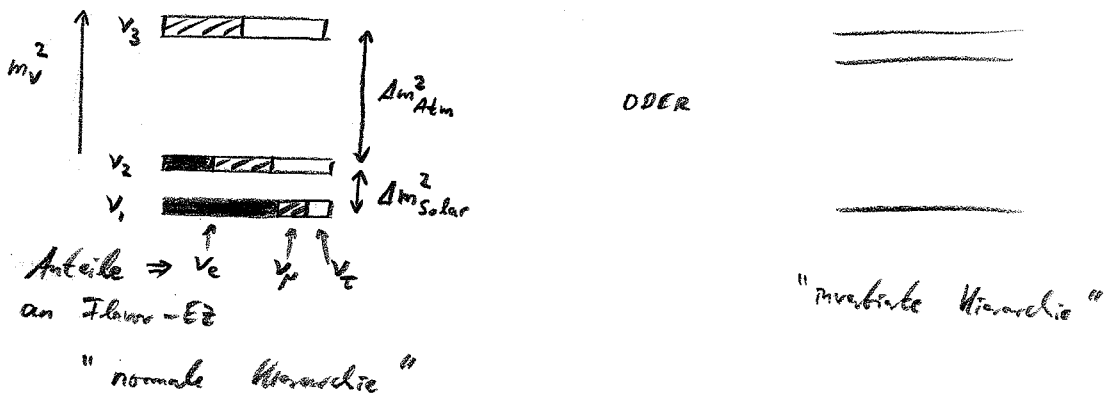 ν₃
m_ν²
Δm²_Atm
ODER
ν₂
Δm²_Solar
ν₁
Anteile ⇒ ν_e ν_μ ν_τ
an Flavor-EZ
"normale Hierarchie"
"invertierte Hierarchie"